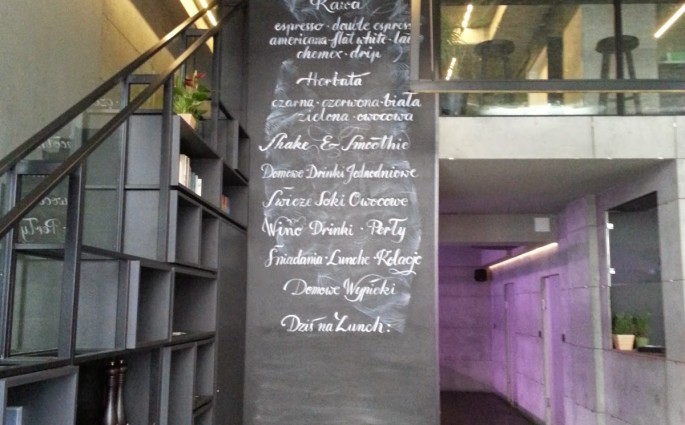 Kawa
espresso · double espresso
americana · flat white · latte
chemex · drip
Herbata
czarna · czerwona · biała
zielona · owocowa
Shake & Smoothie
Domowe Drinki Jednodniowe
Świeże Soki Owocowe
Wino Drinki · Perły
Śniadania · Lunche · Kolacje
Domowe Wypieki
Dziś na Lunch:
Perły